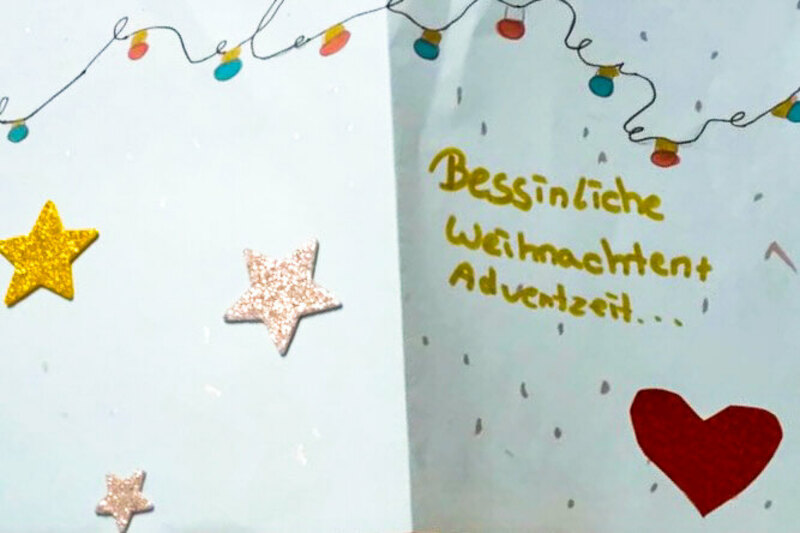 Bessinliche
Weihnachten+
Adventzeit...